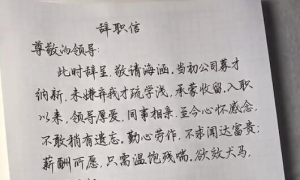 辞职信
尊敬的领导:
此时辞呈,敬请海涵。当初公司募才
纳新,未嫌弃我才疏学浅,承蒙收留,入职
以来,领导厚爱,同事相亲,至今心怀感念,
不敢稍有遗忘。勤心劳作,不求闻达富贵;
薪酬所愿,只需温饱残喘。欲效犬马,